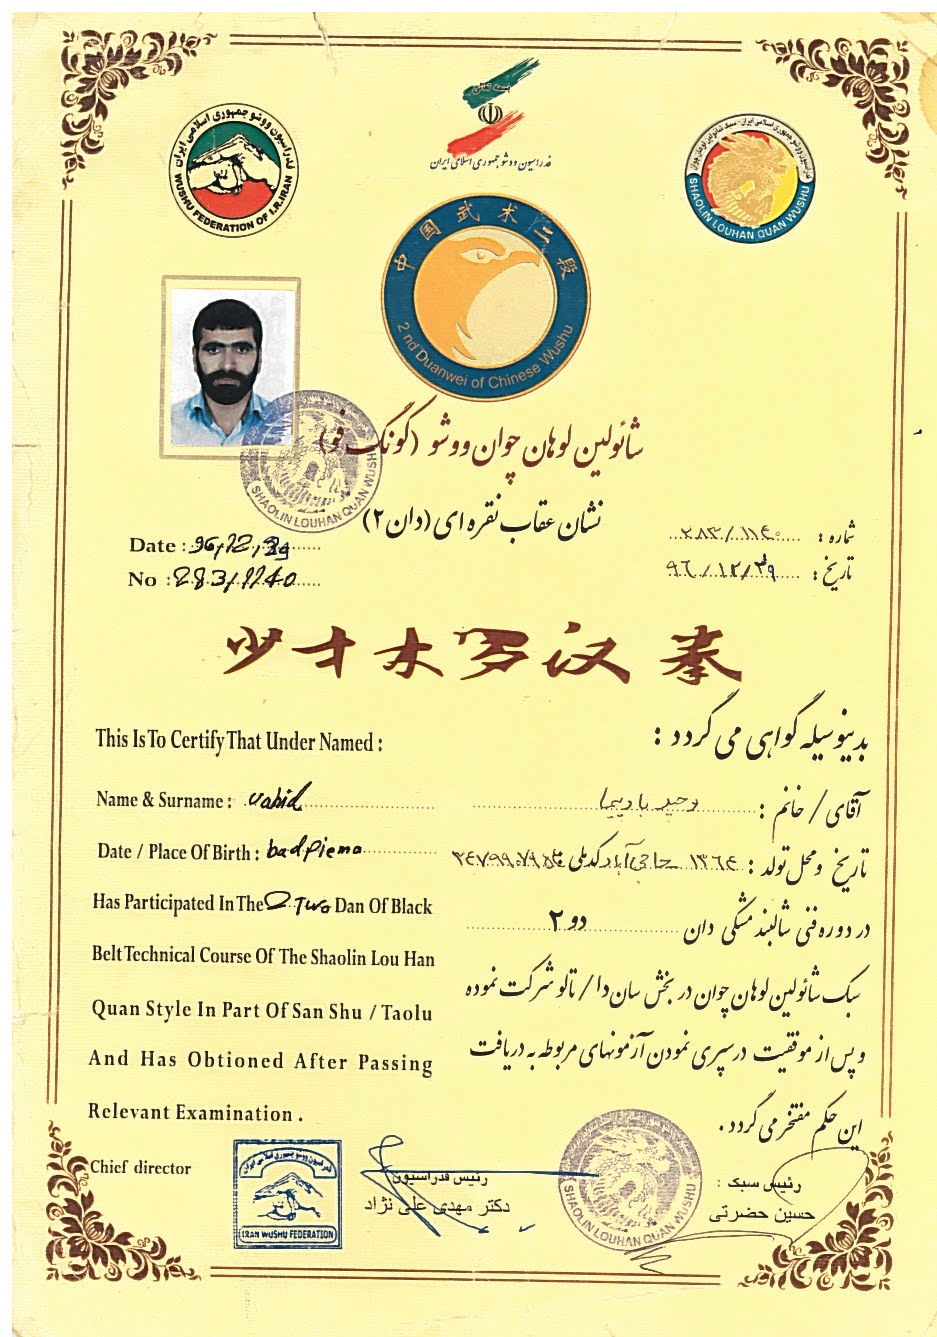 بسمه تعالی
فدراسیون ووشو جمهوری اسلامی ایران
فدراسیون ووشو جمهوری اسلامی ایران
WUSHU FEDERATION OF I.R.IRAN
SHAOLIN LOUHAN QUAN WUSHU
中国武术二段
2 nd Duanwei of Chinese Wushu
شائولین لوهان چوان ووشو (گونگ فو)
SHAOLIN LOUHAN QUAN WUSHU
نشان عقاب نقره ای (دان ۲)
Date : 96/12/29
No : 283/1140
شماره : ۲۸۳/۱۱۴۰
تاریخ : ۹۶/۱۲/۲۹
少才木罗汉拳
This Is To Certify That Under Named :
Name & Surname : vahid
Date / Place Of Birth : badPiema
Has Participated In The 2 Two Dan Of Black
Belt Technical Course Of The Shaolin Lou Han
Quan Style In Part Of San Shu / Taolu
And Has Obtioned After Passing
Relevant Examination .
Chief director
بدینوسیله گواهی می گردد :
آقای / خانم : وحید بادپیما
تاریخ و محل تولد : ۱۳۶۴ حاجی آباد کد ملی
در دوره فنی شالبند مشکی دان دو ۲
سبک شائولین لوهان چوان در بخش سان دا / تالو شرکت نموده
و پس از موفقیت در سپری نمودن آزمونهای مربوطه به دریافت
این حکم مفتخر می گردد .
فدراسیون ووشو جمهوری اسلامی ایران
IRAN WUSHU FEDERATION
رئیس فدراسیون
دکتر مهدی علی نژاد
SHAOLIN LOUHAN QUAN WUSHU
رئیس سبک :
حسین حضرتی